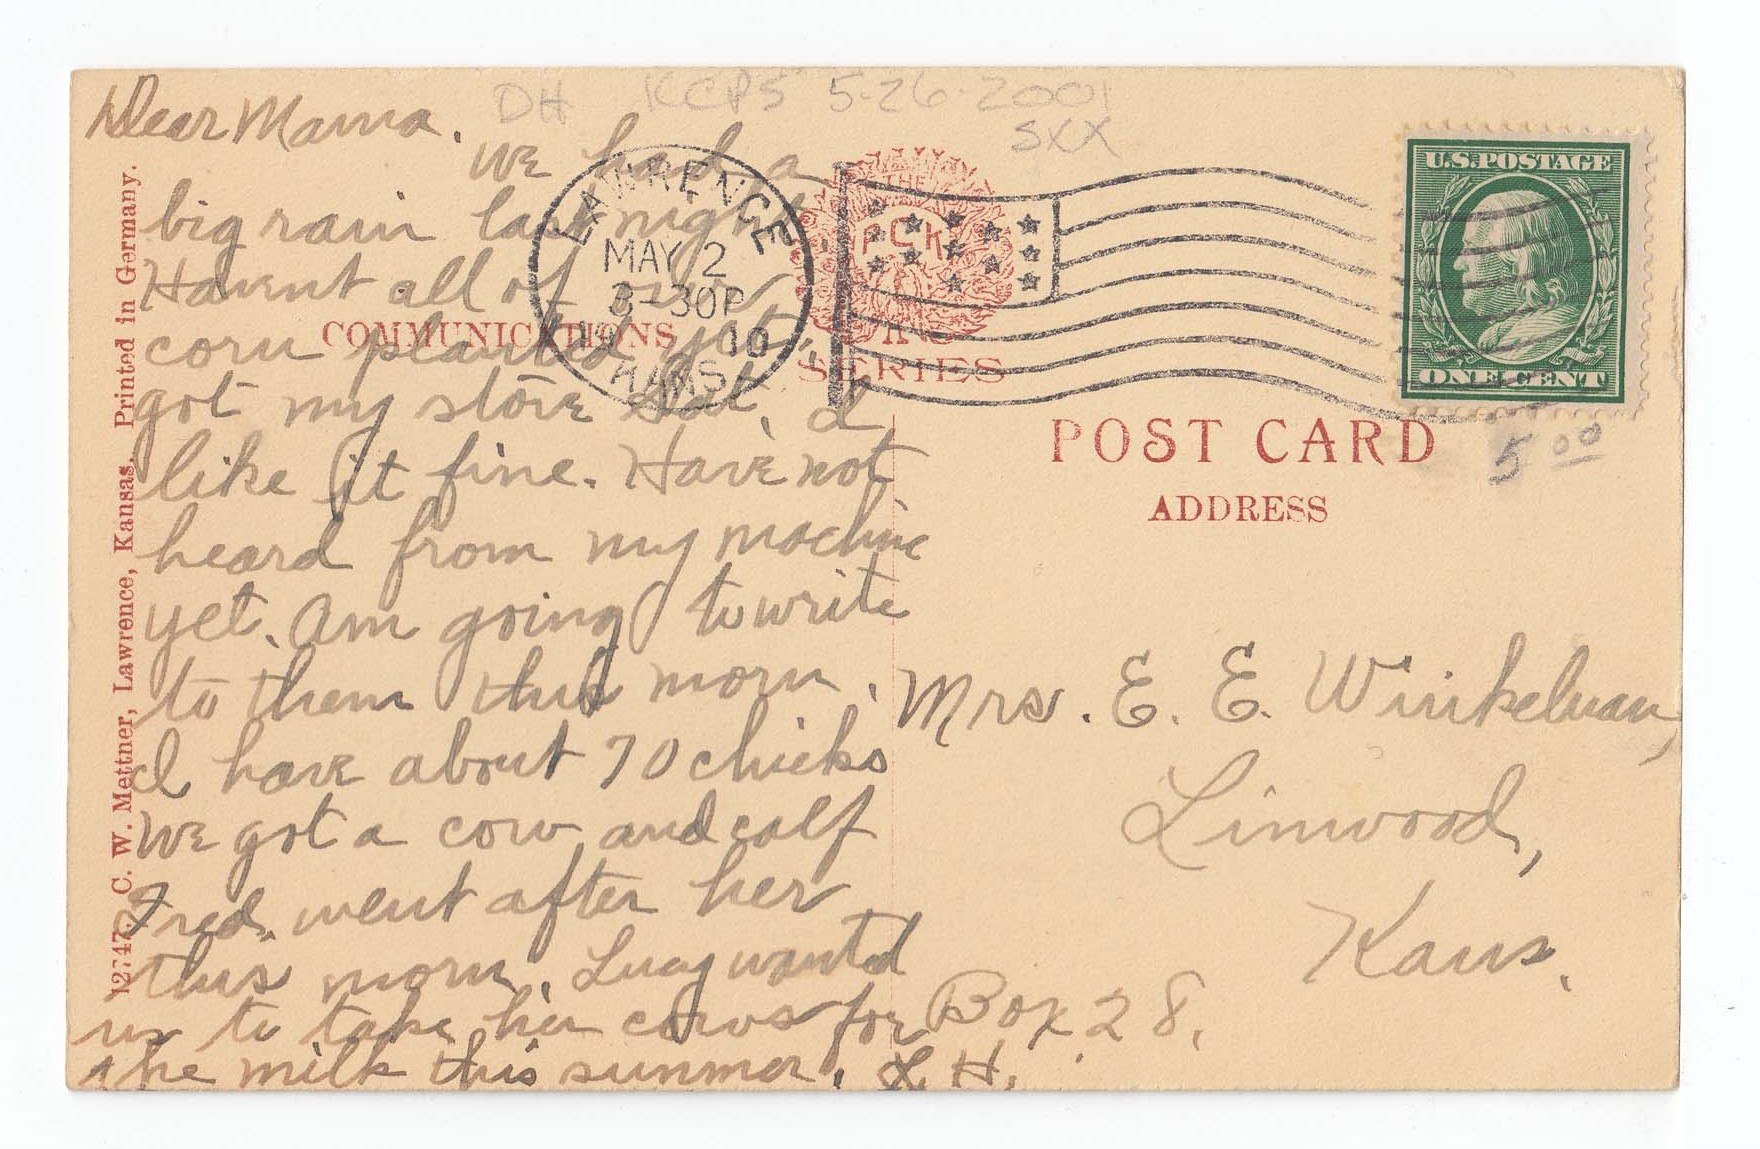 DH KCPS 5-26-2001
SXX
Dear Mama.
We had a
big rain last night
Havent all of our
corn planted yet.
got my stove Sat. I
like it fine. Have not
heard from my machine
yet. Am going to write
to them this morn.
I have about 70 chicks
We got a cow and calf
Fred went after her
this morn. Lucy wanted
us to take her cows for
the milk this summer. L. H.
COMMUNICATIONS
12747. C. W. Mettner, Lawrence, Kansas. Printed in Germany.
LAWRENCE
MAY 2
3-30P
10
KANS.
THE
PCK
SERIES
U.S. POSTAGE
ONE CENT
5 00
POST CARD
ADDRESS
Mrs. E. E. Winkelman,
Linwood,
Kans.
Box 28.